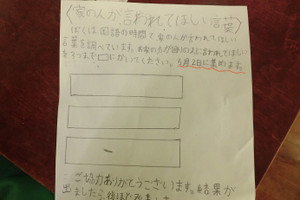 〈家の人が言われてほしい言葉〉
ぼくは国語の時間で家の人が言われてほしい
言葉を調べています。お家の方が周りの人に言われてほしい
を3つまで□にかいてください。5月2日に集めます。
ご協力ありがとうございます。結果が
出ましたら後ほど